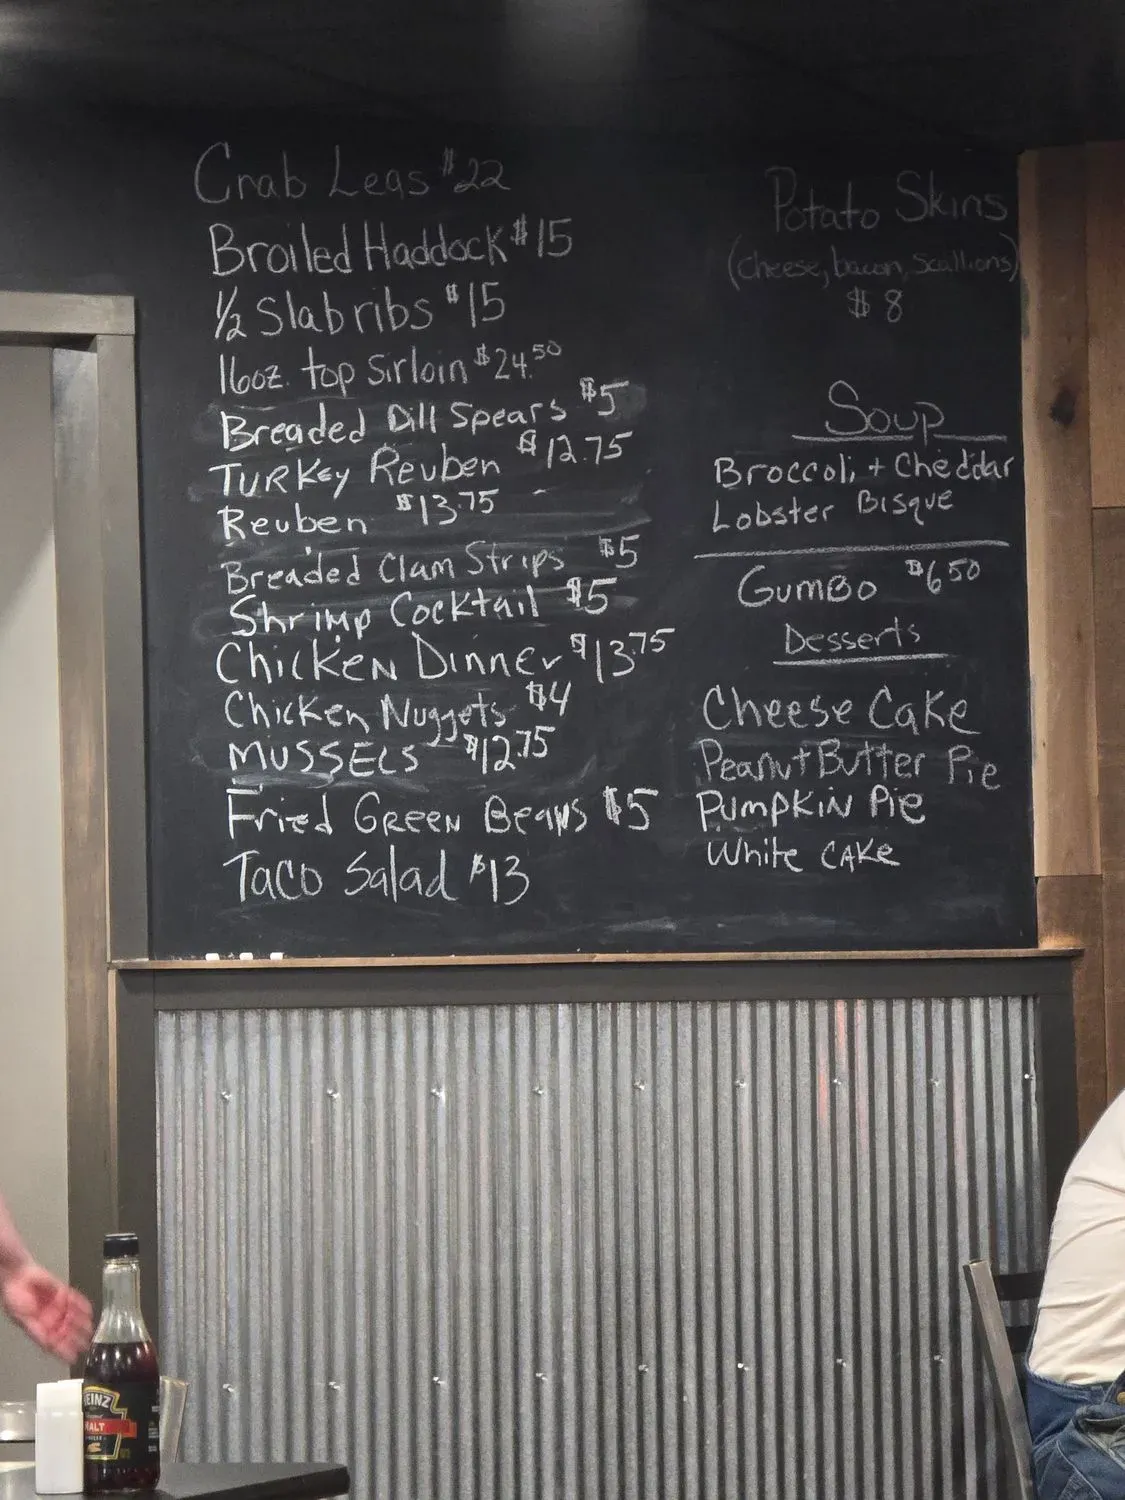 Crab Legs $22
Broiled Haddock $15
1/2 Slab ribs $15
16oz. top Sirloin $24.50
Breaded Dill Spears $5
TURKey Reuben $12.75
Reuben $13.75
Breaded Clam Strips $5
Shrimp Cocktail $5
Chicken Dinner $13.75
Chicken Nuggets $4
MUSSELS $12.75
Fried GREEN Beans $5
Taco Salad $13
Potato Skins
(cheese, bacon, scallions)
$8
Soup
Broccoli + Cheddar
Lobster Bisque
Gumbo $6.50
Desserts
Cheese Cake
Peanut Butter Pie
Pumpkin Pie
White CAKe
HEINZ
MALT